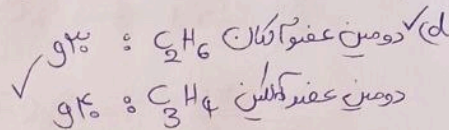 d) ✓ دومین عضو آلکان C₂H₆ : ۳۰g
دومین عضو آلکین C₃H₄ : ۴۰g ✓